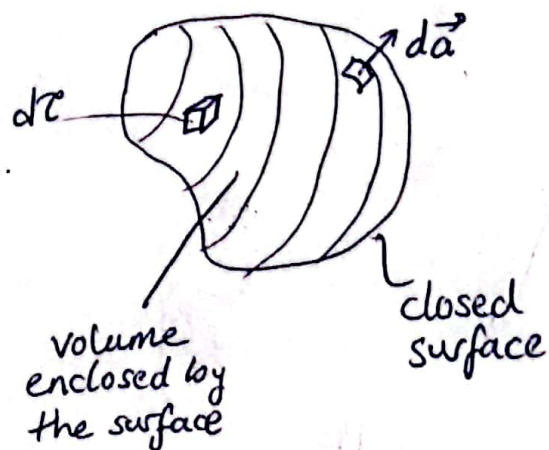 da⃗
dτ
closed
surface
volume
enclosed by
the surface